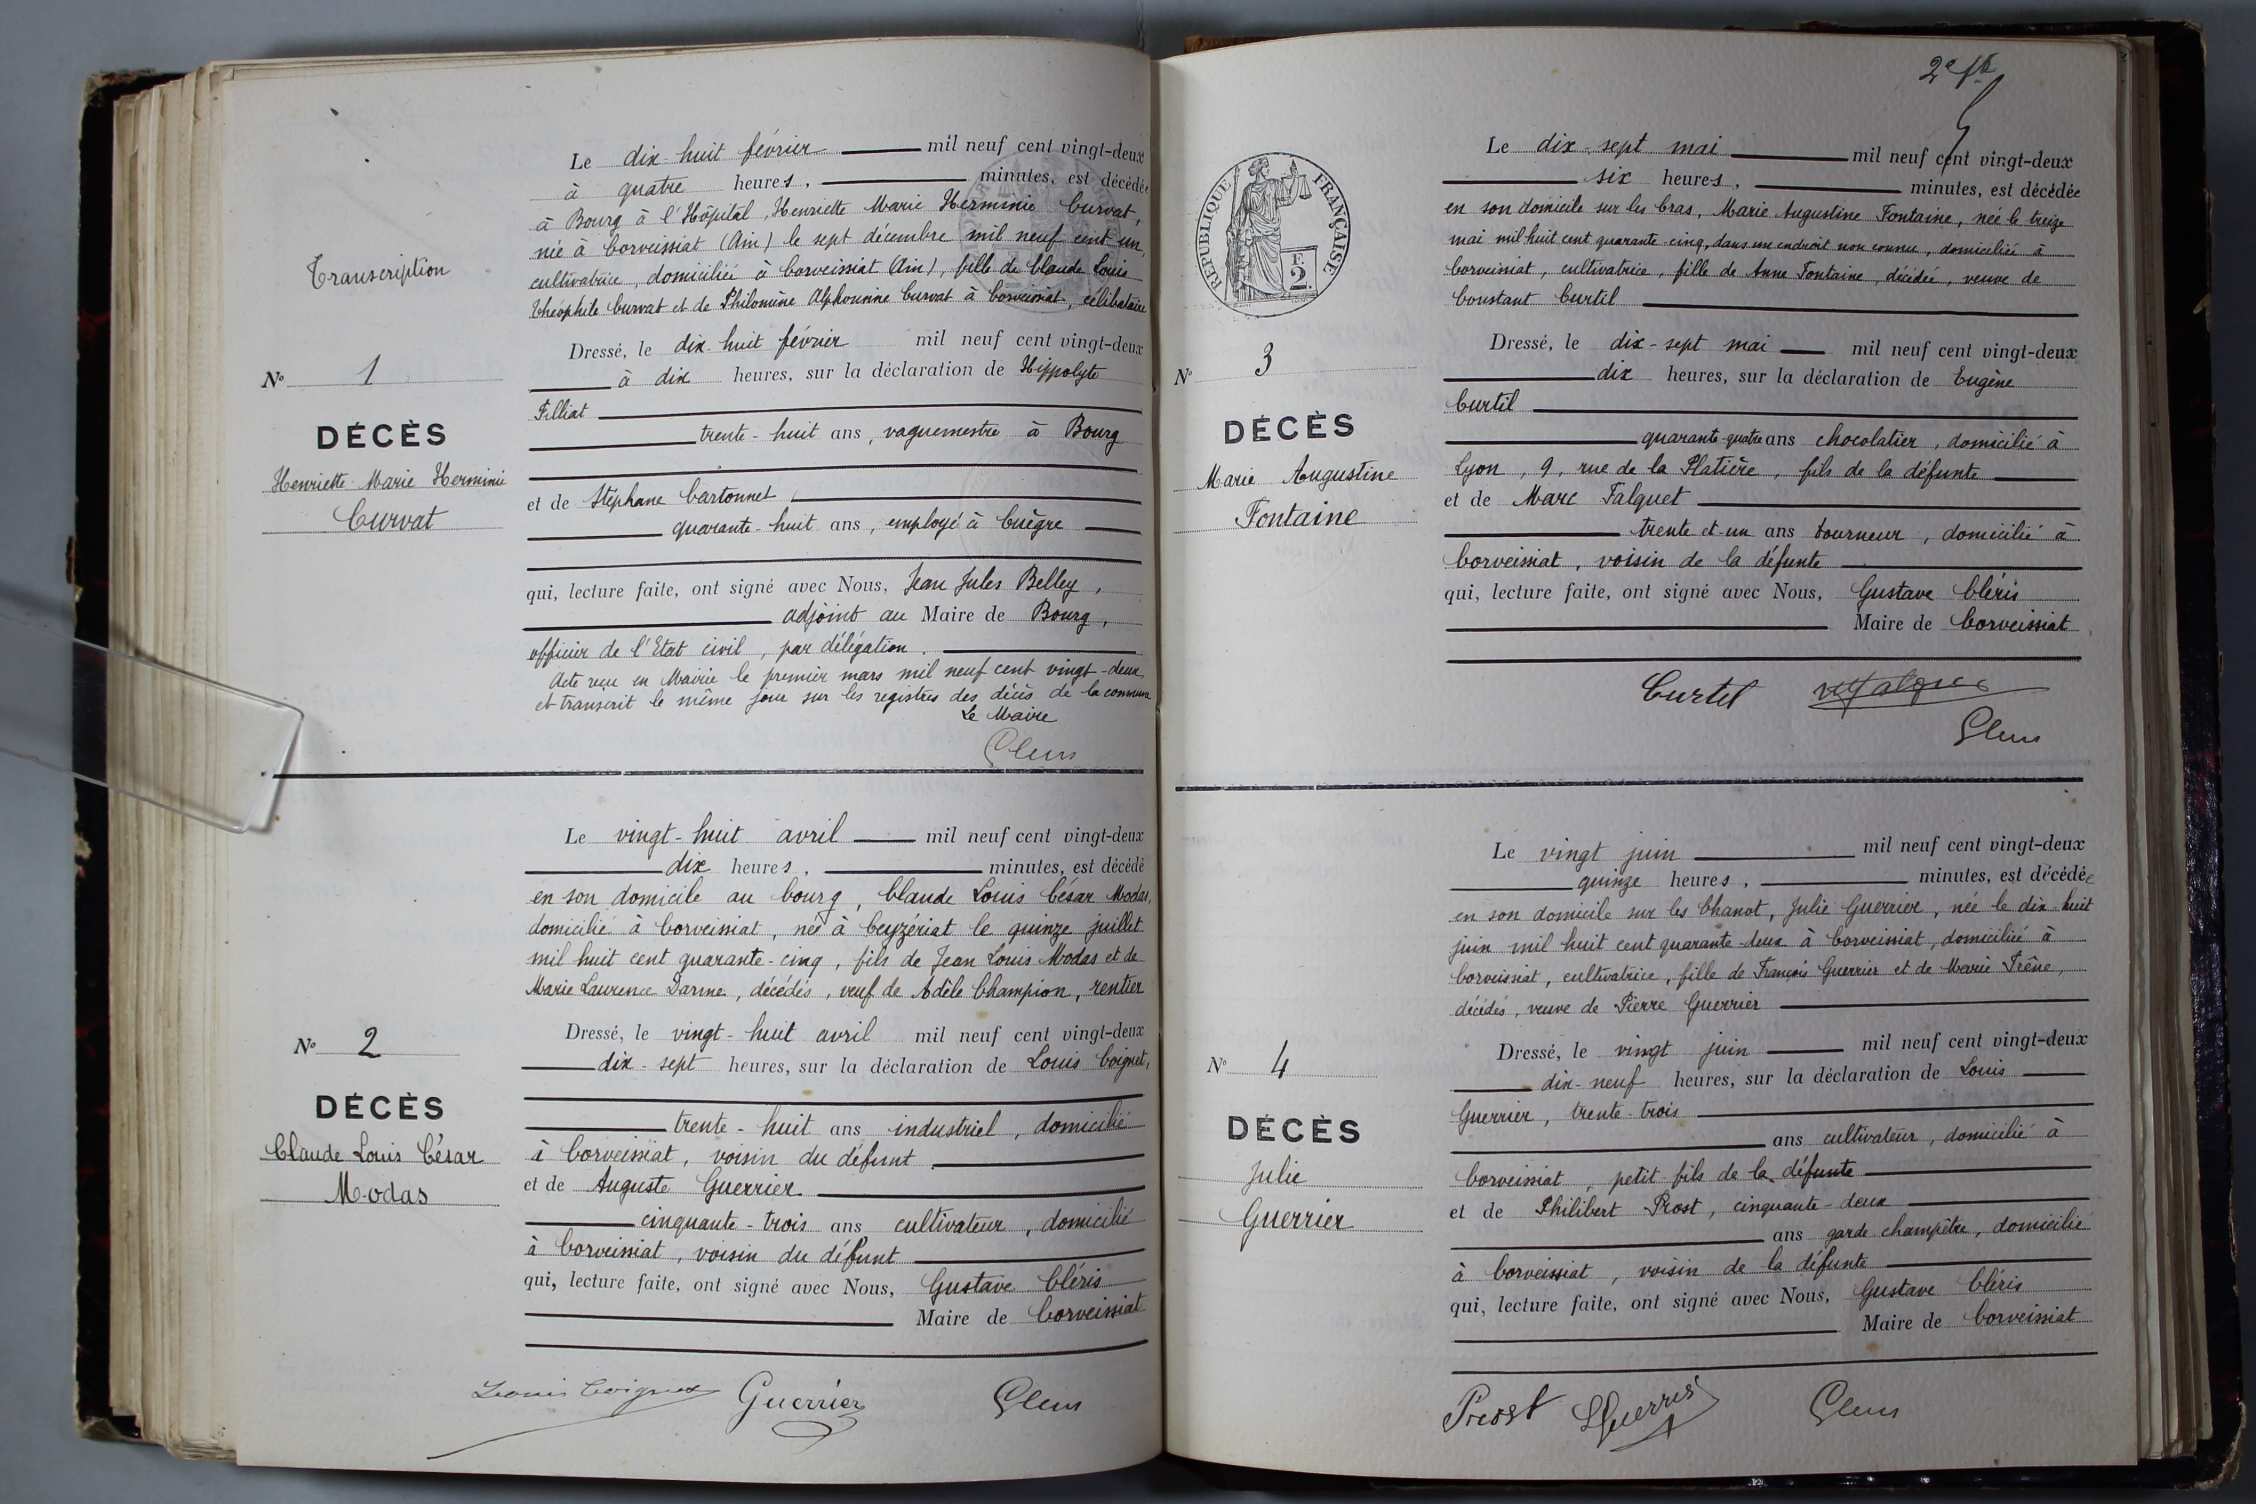 Transcription
N° 1
DÉCÈS
Henriette Marie Herminie
Curvat
Le dix-huit février mil neuf cent vingt-deux
à quatre heures, minutes, est décédée
à Bourg à l'Hôpital, Henriette Marie Herminie Curvat,
née à Corveissiat (Ain) le sept décembre mil neuf cent un,
cultivatrice, domiciliée à Corveissiat (Ain), fille de Claude Louis
Théophile Curvat et de Philomène Alphonsine Curvat à Corveissiat, célibataire
Dressé, le dix-huit février mil neuf cent vingt-deux
à dix heures, sur la déclaration de Hippolyte
Filliat
trente-huit ans, vaguemestre à Bourg
et de Stéphane Cartonnet,
quarante-huit ans, employé à Cuègre
qui, lecture faite, ont signé avec Nous, Jean Jules Belley,
adjoint au Maire de Bourg,
officier de l'Etat civil, par délégation.
Acte reçu en Mairie le premier mars mil neuf cent vingt-deux
et transcrit le même jour sur les registres des décès de la commune
Le Maire
N° 2
DÉCÈS
Claude Louis César
Modas
Le vingt-huit avril mil neuf cent vingt-deux
dix heures, minutes, est décédé
en son domicile au bourg, Claude Louis César Modas,
domicilié à Corveissiat, né à Ceyzériat le quinze juillet
mil huit cent quarante-cinq, fils de Jean Louis Modas et de
Marie Laurence Darme, décédés, veuf de Adèle Champion, rentier
Dressé, le vingt-huit avril mil neuf cent vingt-deux
dix-sept heures, sur la déclaration de Louis Coignet,
trente-huit ans industriel, domicilié
à Corveissiat, voisin du défunt
et de Auguste Guerrier
cinquante-trois ans cultivateur, domicilié
à Corveissiat, voisin du défunt
qui, lecture faite, ont signé avec Nous, Gustave Cléris
Maire de Corveissiat
Louis Coignet Guerrier
2e ft
RÉPUBLIQUE FRANÇAISE
F.
2.
N° 3
DÉCÈS
Marie Augustine
Fontaine
Le dix-sept mai mil neuf cent vingt-deux
six heures, minutes, est décédée
en son domicile sur les Cras, Marie Augustine Fontaine, née le treize
mai mil huit cent quarante-cinq, dans un endroit non connu, domiciliée à
Corveissiat, cultivatrice, fille de Anne Fontaine, décédée, veuve de
Constant Curtil
Dressé, le dix-sept mai mil neuf cent vingt-deux
dix heures, sur la déclaration de Eugène
Curtil
quarante-quatre ans chocolatier, domicilié à
Lyon, 9, rue de la Platière, fils de la défunte
et de Marc Falquet
trente et un ans tourneur, domicilié à
Corveissiat, voisin de la défunte
qui, lecture faite, ont signé avec Nous, Gustave Cléris
Maire de Corveissiat
Curtil
N° 4
DÉCÈS
Julie
Guerrier
Le vingt juin mil neuf cent vingt-deux
quinze heures, minutes, est décédée
en son domicile sur les Chanot, Julie Guerrier, née le dix-huit
juin mil huit cent quarante-deux à Corveissiat, domiciliée à
Corveissiat, cultivatrice, fille de François Guerrier et de Marie Frêne,
décédés, veuve de Pierre Guerrier
Dressé, le vingt juin mil neuf cent vingt-deux
dix-neuf heures, sur la déclaration de Louis
Guerrier, trente-trois
ans cultivateur, domicilié à
Corveissiat, petit-fils de la défunte
et de Philibert Prost, cinquante-deux
ans garde champêtre, domicilié
à Corveissiat, voisin de la défunte
qui, lecture faite, ont signé avec Nous, Gustave Cléris
Maire de Corveissiat
Prost